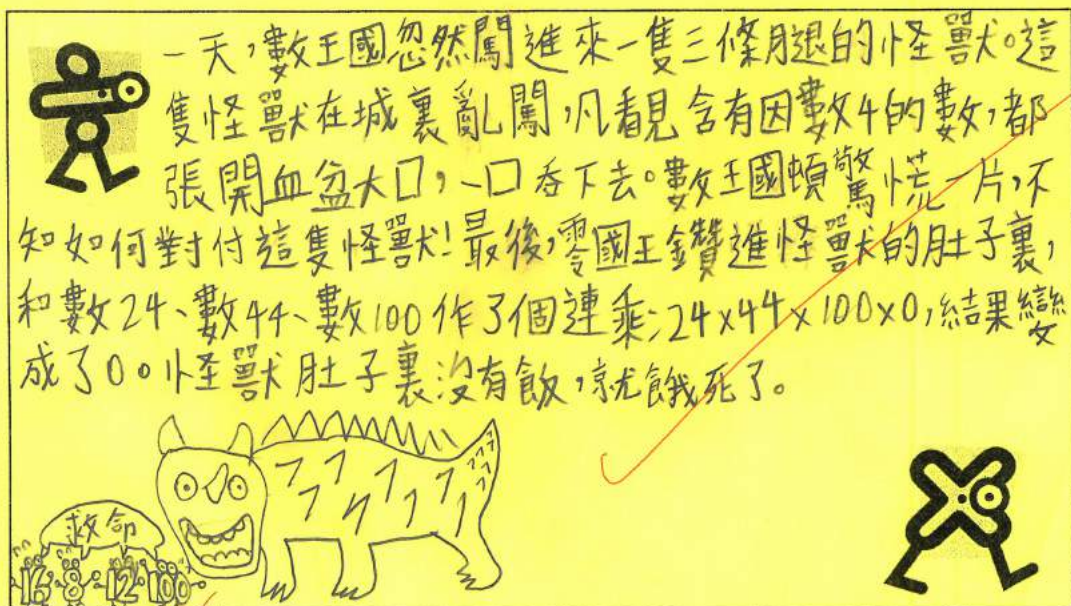 一天,數王國忽然闖進來一隻三條腿的怪獸。這
隻怪獸在城裏亂闖,凡看見含有因數4的數,都
張開血盆大口,一口吞下去。數王國頓驚慌一片,不
知如何對付這隻怪獸!最後,零國王鑽進怪獸的肚子裏,
和數24、數44、數100作了個連乘;24×44×100×0,結果變
成了0。怪獸肚子裏沒有飯,就餓死了。
救命
16 8 12 100